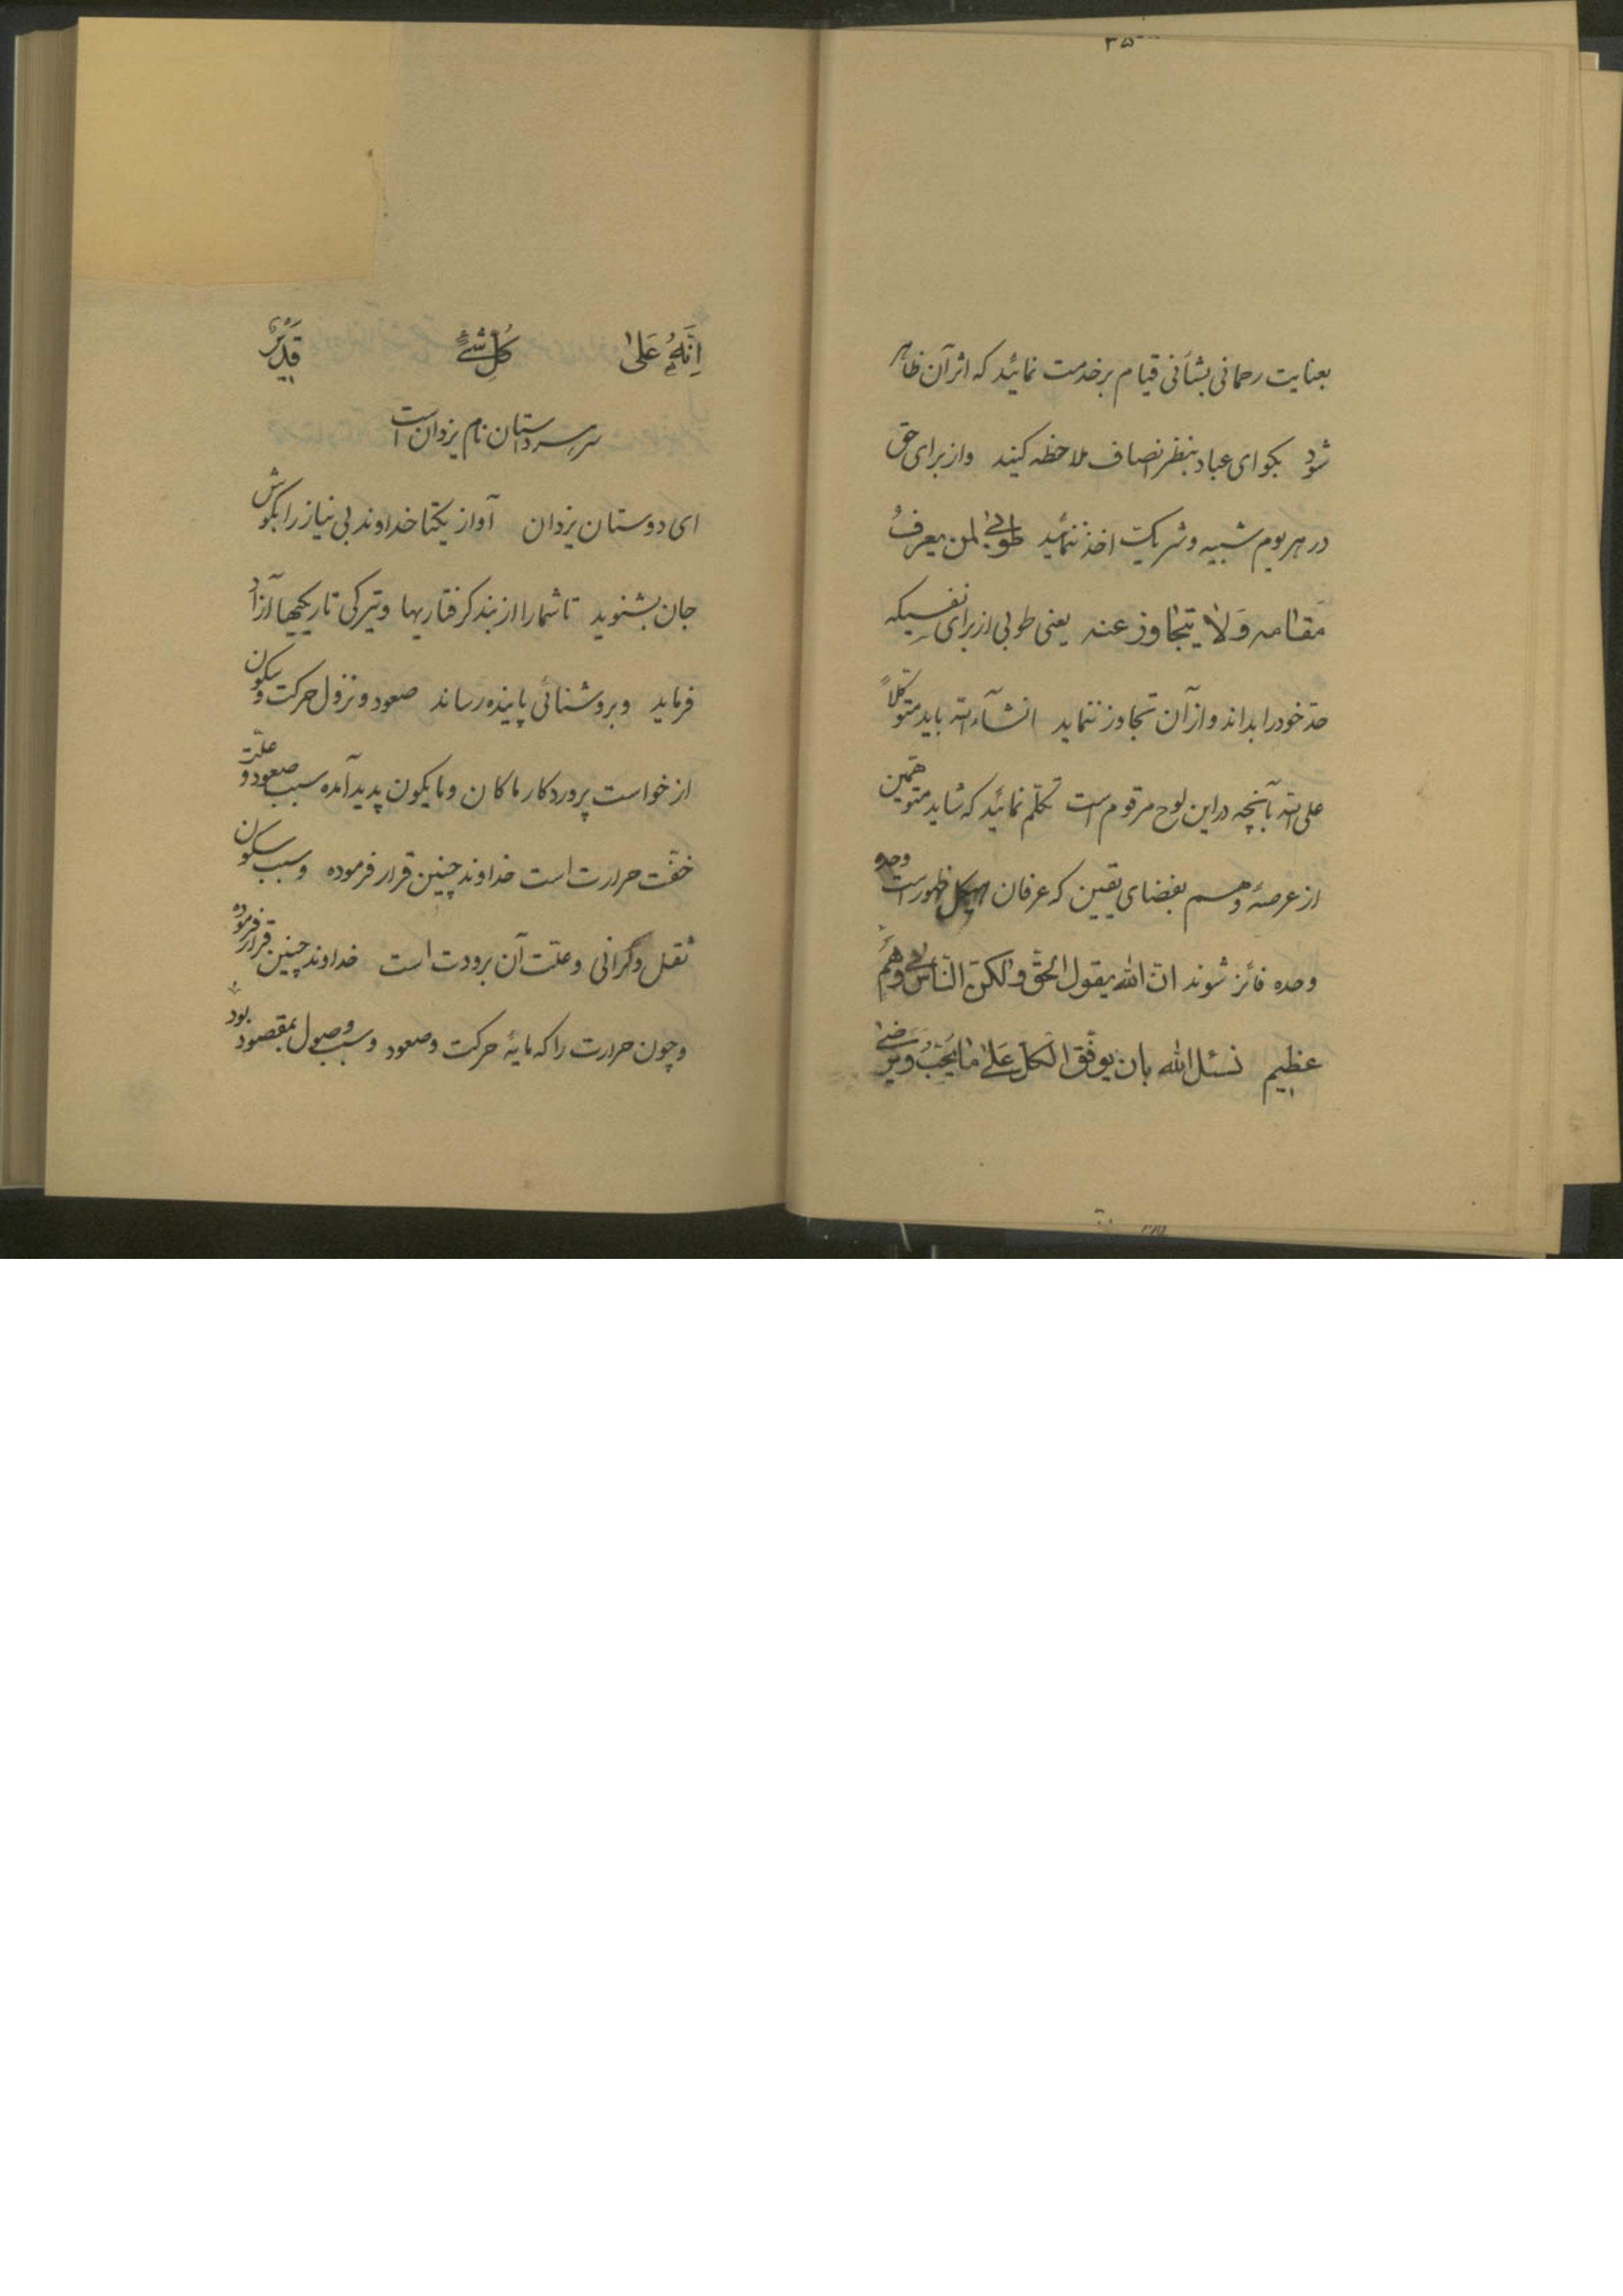 ۳۵
بعنایت رحمانی بشأنی قیام بر خدمت نمائید که اثر آن ظاهر
شود بگو ای عباد بنظر انصاف ملاحظه کنید و از برای حق
در هر یوم شبیه و شریک اخذ ننمائید طوبی لمن یعرف
مقامه و لا یتجاوز عنه یعنی طوبی از برای نفسیکه
حدّ خود را بداند و از آن تجاوز ننماید انشآءالله باید متوکّلاً
علی الله بآنچه در این لوح مرقوم است تکلّم نمائید که شاید متوهّمین
از عرصهٔ وهم بفضای یقین که عرفان هیکل ظهور است وحده
وحده فائز شوند انّ الله یقول الحقّ ولکنّ النّاس فی وهم
عظیم نسئل الله بان یوفّق الکلّ علی ما یحبّ و یرضی
اِنَّهُ عَلیٰ کُلِّ شَیْءٍ قَدیرٌ
سر هر داستان نام یزدان است
ای دوستان یزدان آواز یکتا خداوند بی نیاز را بگوش
جان بشنوید تا شما را از بند گرفتاریها و تیرگی تاریکیها آزاد
فرماید و بروشنائی پاینده رساند صعود و نزول حرکت و سکون
از خواست پروردگار ما کان و ما یکون پدید آمده سبب صعود و علّت
خفّت حرارت است خداوند چنین قرار فرموده و سبب سکون
ثقل و گرانی و علّت آن برودت است خداوند چنین قرار فرموده
و چون حرارت را که مایهٔ حرکت و صعود و سبب وصول بمقصود بود